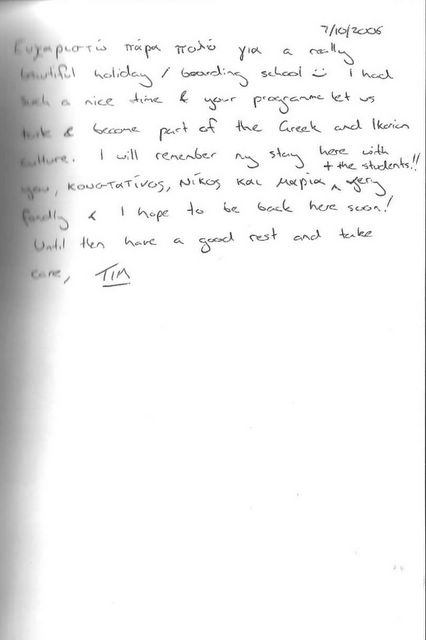 7/10/2006
Ευχαριστώ πάρα πολύ για a really
beautiful holiday / boarding school ☺ I had
such a nice time & your programme let us
taste & become part of the Greek and Ikarian
culture. I will remember my stay here with
+ the students!!
you, κονστατίνος, Νίκος και μαρία ^ very
fondly & I hope to be back here soon!
Until then have a good rest and take
care, TIM